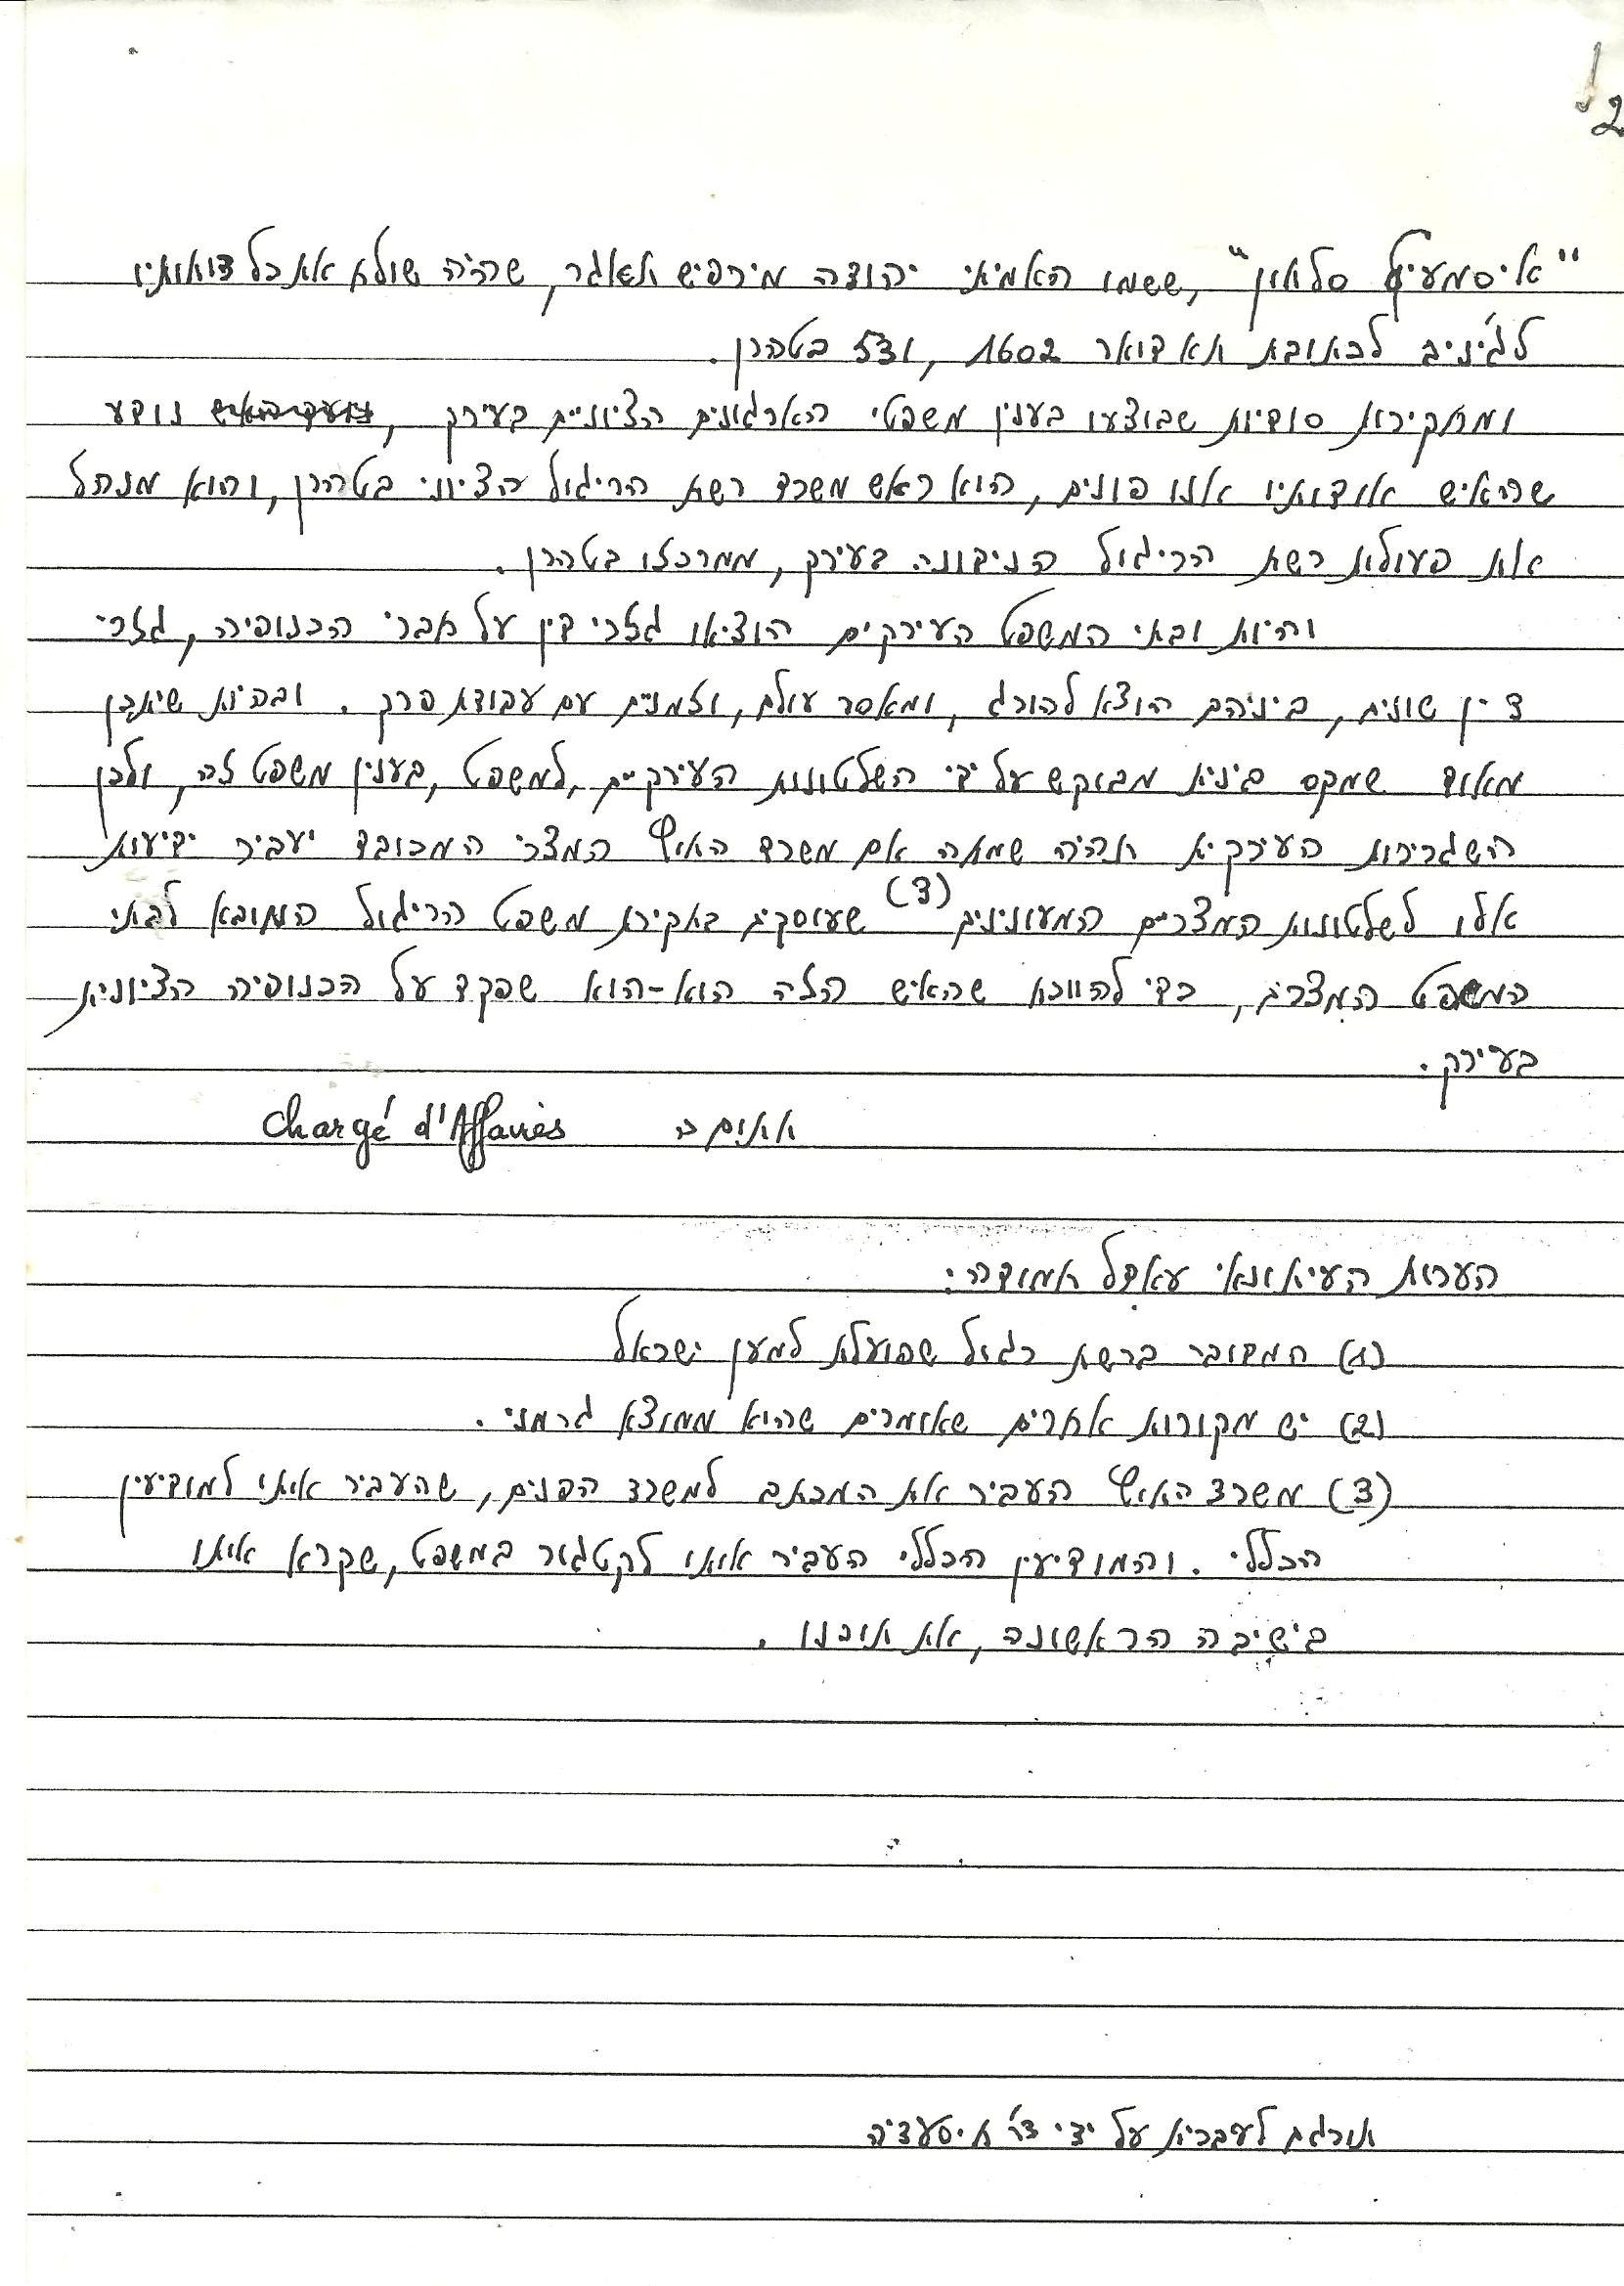 2
"איסמעיל סלחון", ששמו האמיתי יהודה מירפיש תאגר, שהיה שולח את כל דוחותיו
לג'ניב לכתובת תא דואר 1602, וזנ בטהרן.
ומחקירות סודיות שבוצעו בענין משפטי הארגונים הציוניים בעירק, נודע
שהאיש אודותיו אנו פונים, הוא ראש משרד רשת הריגול הציוני בטהרן, והוא מנהל
את פעולת רשת הריגול הניבונה בעירק, ממרכזו בטהרן.
והיות ובתי המשפט העירקים הוציאו גזרי דין על חברי הכנופיה, גזרי
דין שונים, ביניהם הוצא להורג, ומאסר עולם, וזמניים עם עבודת פרך. ובהיות שיתכן
מאוד שמקס בינית מבוקש על ידי השלטונות העירקיים, למשפט, בענין משפט זה, ולכן
השגרירות העירקית תהיה שמחה אם משרד החוץ המצרי המכובד יעביר ידיעות
אלו לשלטונות המצריים המעונינים (3) שעוסקים בחקירת משפט הריגול המובא לבתי
המשפט המצרים, כדי להווכח שהאיש הזה הוא-הוא שפקד על הכנופיה הציונית
בעירק.
חתום ה Chargé d'Affaires
הערות העיתונאי עאדל חמודה:
(1) המדובר ברשת רגול שפועלת למען ישראל
(2) יש מקורות אחרים שאומרים שהוא ממוצא גרמני.
(3) משרד החוץ העביר את המכתב למשרד הפנים, שהעביר אותו למודיעין
הכללי. והמודיעין הכללי העביר אותו לקטגור במשפט, שקרא אותו
בישיבה הראשונה, את תוכנו.
תורגם לעברית על ידי ד"ר א. סעדיה